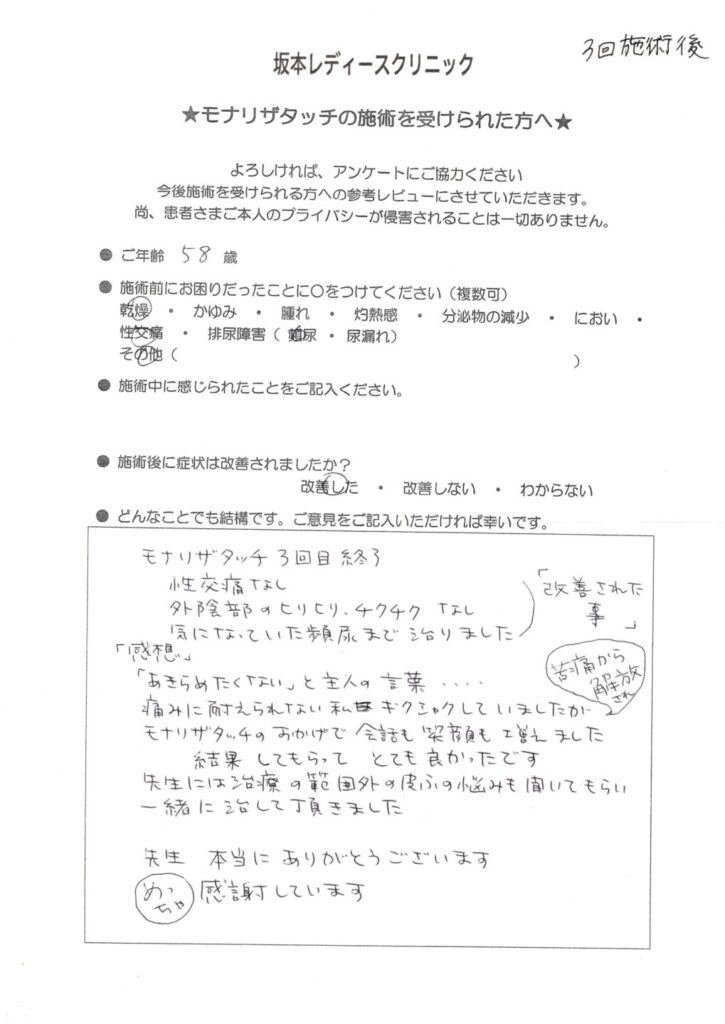 3回施術後
坂本レディースクリニック
★モナリザタッチの施術を受けられた方へ★
よろしければ、アンケートにご協力ください
今後施術を受けられる方への参考レビューにさせていただきます。
尚、患者さまご本人のプライバシーが侵害されることは一切ありません。
● ご年齢 58 歳
● 施術前にお困りだったことに○をつけてください（複数可）
乾燥 ・ かゆみ ・ 腫れ ・ 灼熱感 ・ 分泌物の減少 ・ におい ・
性交痛 ・ 排尿障害（ 頻尿 ・ 尿漏れ）
その他（ ）
● 施術中に感じられたことをご記入ください。
● 施術後に症状は改善されましたか？
改善した ・ 改善しない ・ わからない
● どんなことでも結構です。ご意見をご記入いただければ幸いです。
モナリザタッチ 3回目 終了
性交痛なし
外陰部のヒリヒリ、チクチク なし
気になっていた頻尿まで治りました
「改善された
事」
「感想」
「あきらめたくない」と主人の言葉‥‥
苦痛から
解放
され
痛みに耐えられない私 ギクシャクしていましたが
モナリザタッチのおかげで会話も笑顔も増えました
結果 してもらって とても良かったです
先生には治療の範囲外の皮ふの悩みも聞いてもらい
一緒に治して頂きました
先生 本当に ありがとうございます
めっ
ちゃ
感謝しています